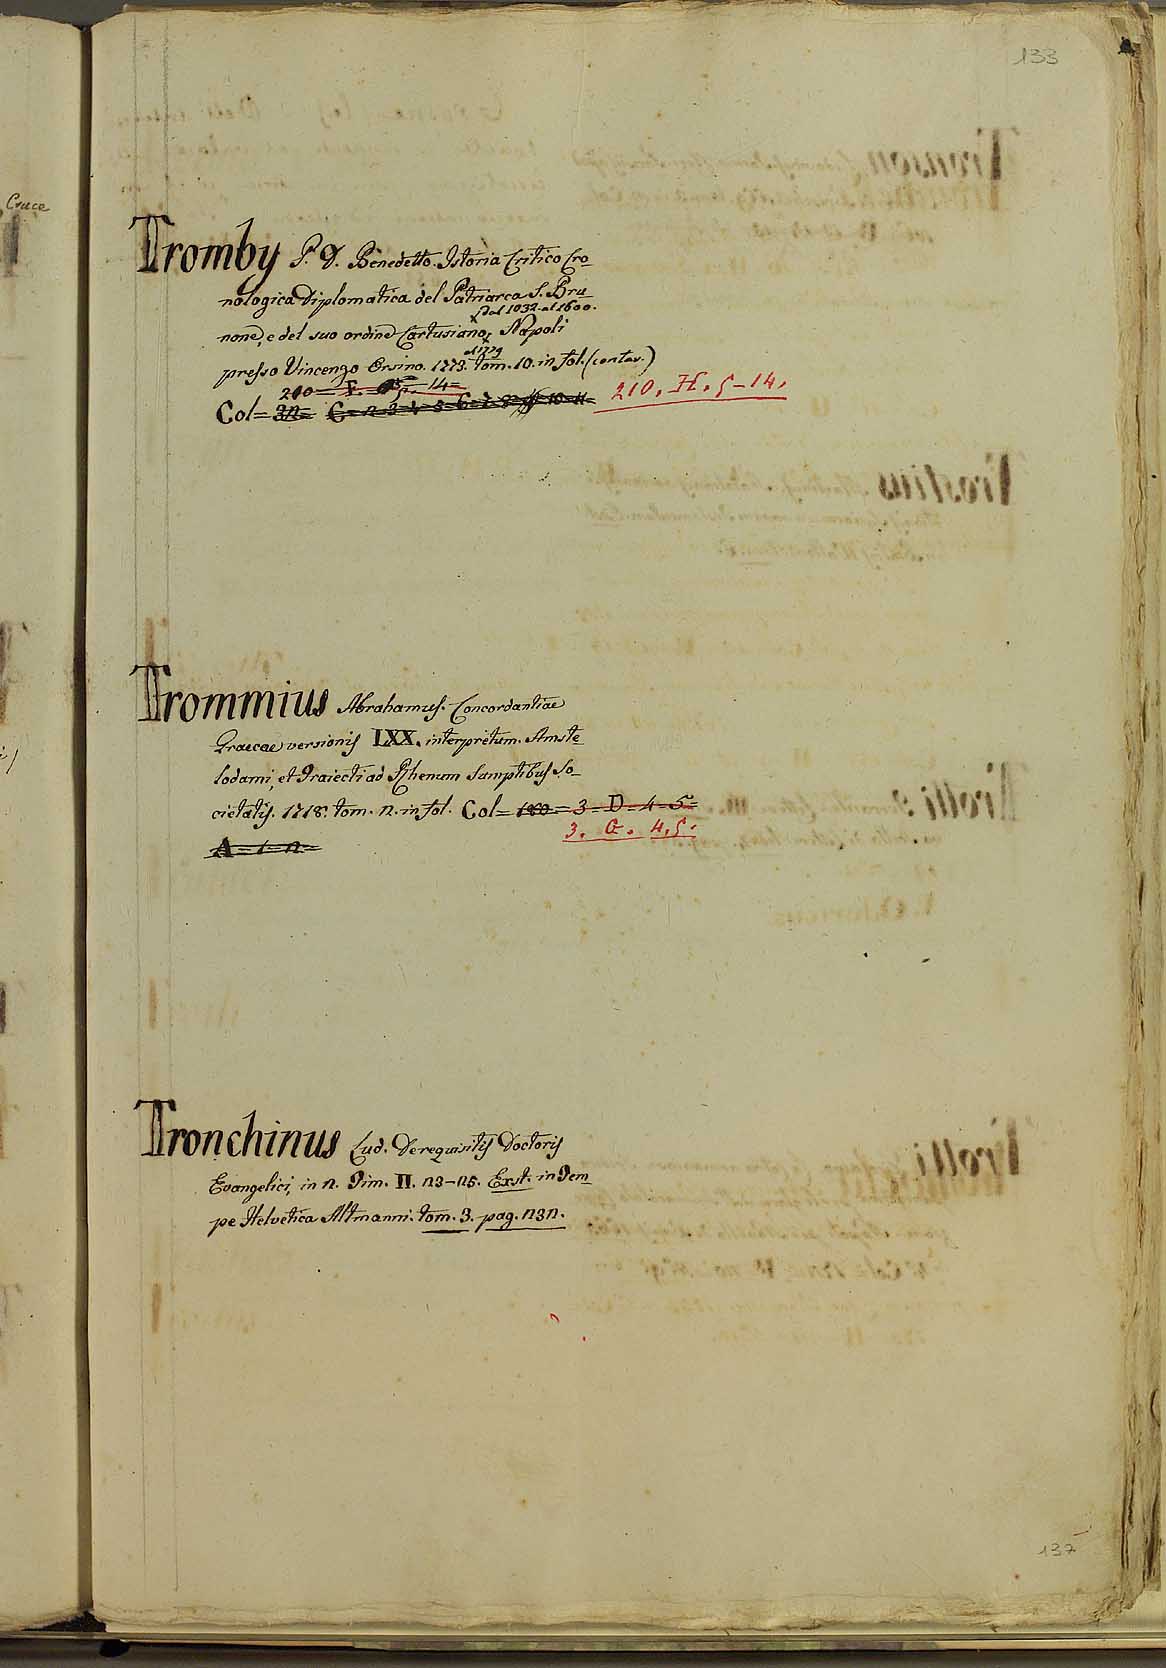 133
Cruce
Tromby P. D. Benedetto. Istoria Critico Cro-
nologica Diplomatica del Patriarca S. Bru-
dal 1032. al 1600.
none, e del suo ordine Cartusiano, Napoli
al 1779
presso Vincenzo Orsino. 1773. tom. 10. in fol. (contax.)
210 = F. 5 - 14 =
Col = 32 = C = 2-3-4-5-6-7-8-9-10-11 210. H. 5-14.
Trommius Abrahamus. Concordantiae
Graecae versionis LXX. interpretum. Amste-
lodami, et Traiecti ad Rhenum Sumptibus So-
cietatis. 1718. tom. 2. in fol. Col = 180 = 3 = D = 4 = 5 =
3. G. 4.5.
A = 1 = 2 =
Tronchinus Lud. De requisitis Doctoris
Evangelici, in 2. Tim. II. 23-25. Exst. in Tem-
pe Helvetica Altmanni. tom. 3. pag. 232.
137